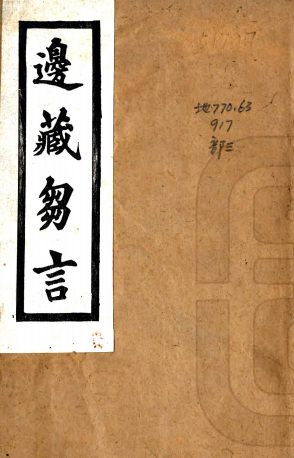 邊藏芻言
地770.63
917
部三